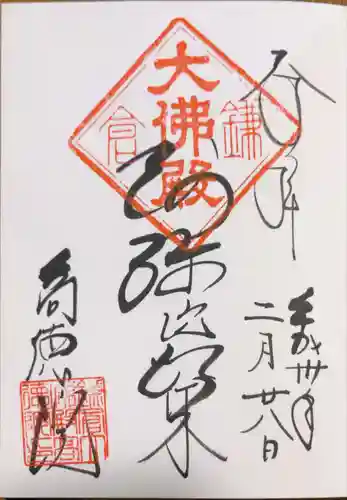 奉拝
平成卅年
二月廿八日
鎌倉
大佛殿
阿弥陀如来
高徳院